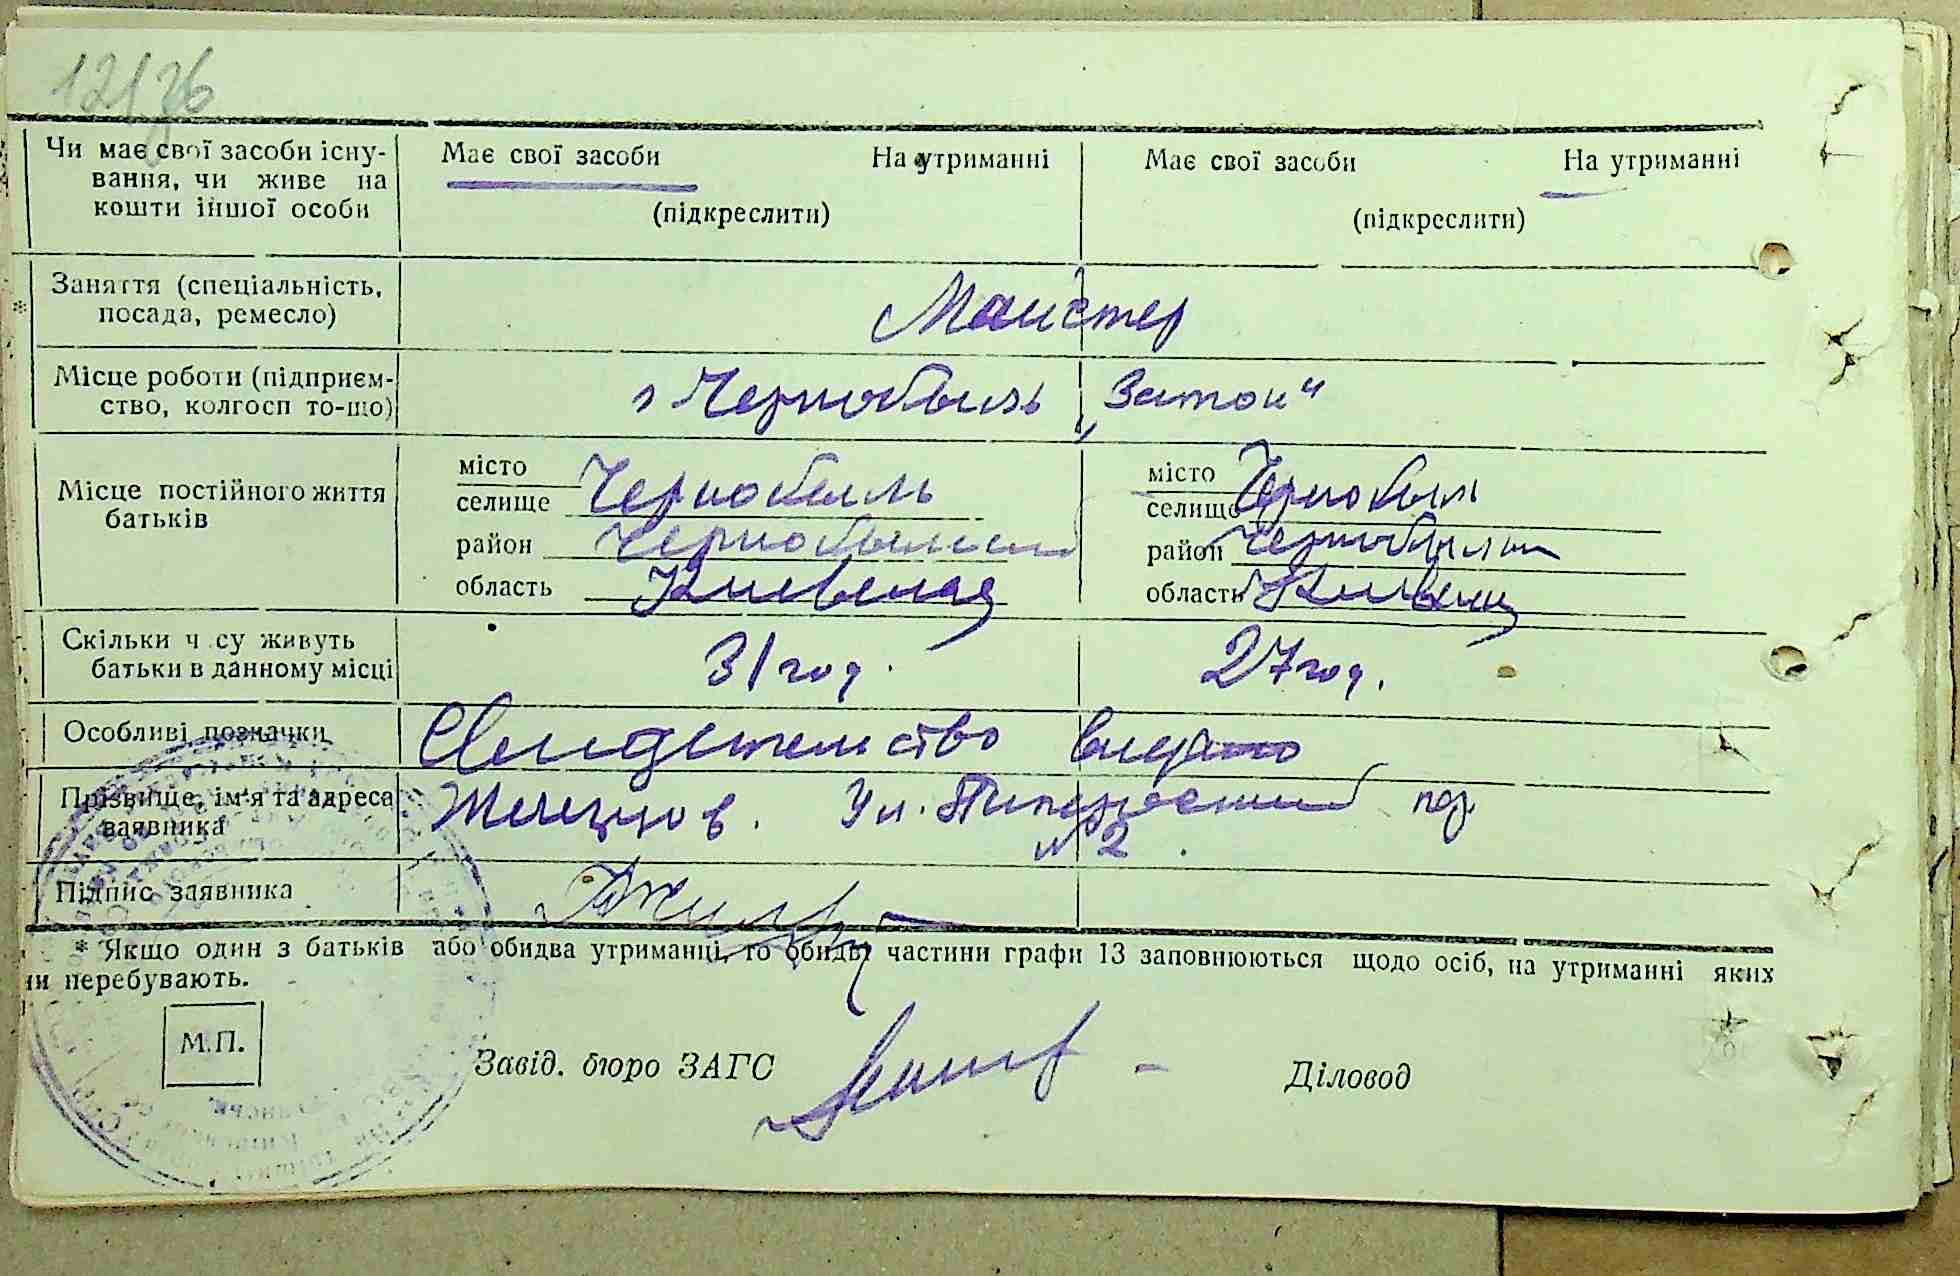 12/36
Чи має свої засоби існу-
вання, чи живе на
кошти іншої особи
Має свої засоби На утриманні
(підкреслити)
Має свої засоби На утриманні
(підкреслити)
Заняття (спеціальність,
посада, ремесло)
Майстер
Місце роботи (підприєм-
ство, колгосп то-що)
г Чернобыль „Затон"
Місце постійного життя
батьків
місто
селище Чернобыль
район
область Киевская
місто
селище Чернобыль
район
область
Скільки ч су живуть
батьки в данному місці
31 год. 27 год.
Особливі позначки
Свидетельство видано
Прізвище, ім'я та адреса
заявника
Ул.
№ 2
Підпис заявника
* Якщо один з батьків або обидва утриманці, то обидві частини графи 13 заповнюються щодо осіб, на утриманні яких
ни перебувають.
М.П.
Завід. бюро ЗАГС Діловод